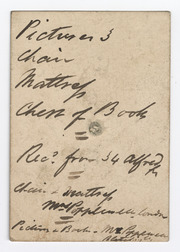 Pictures 3
Chair
Mattress
Chest of Books
Rec? from 34 Alfred
Chair & Mattress
Mrs London
Picture & Books - Mrs